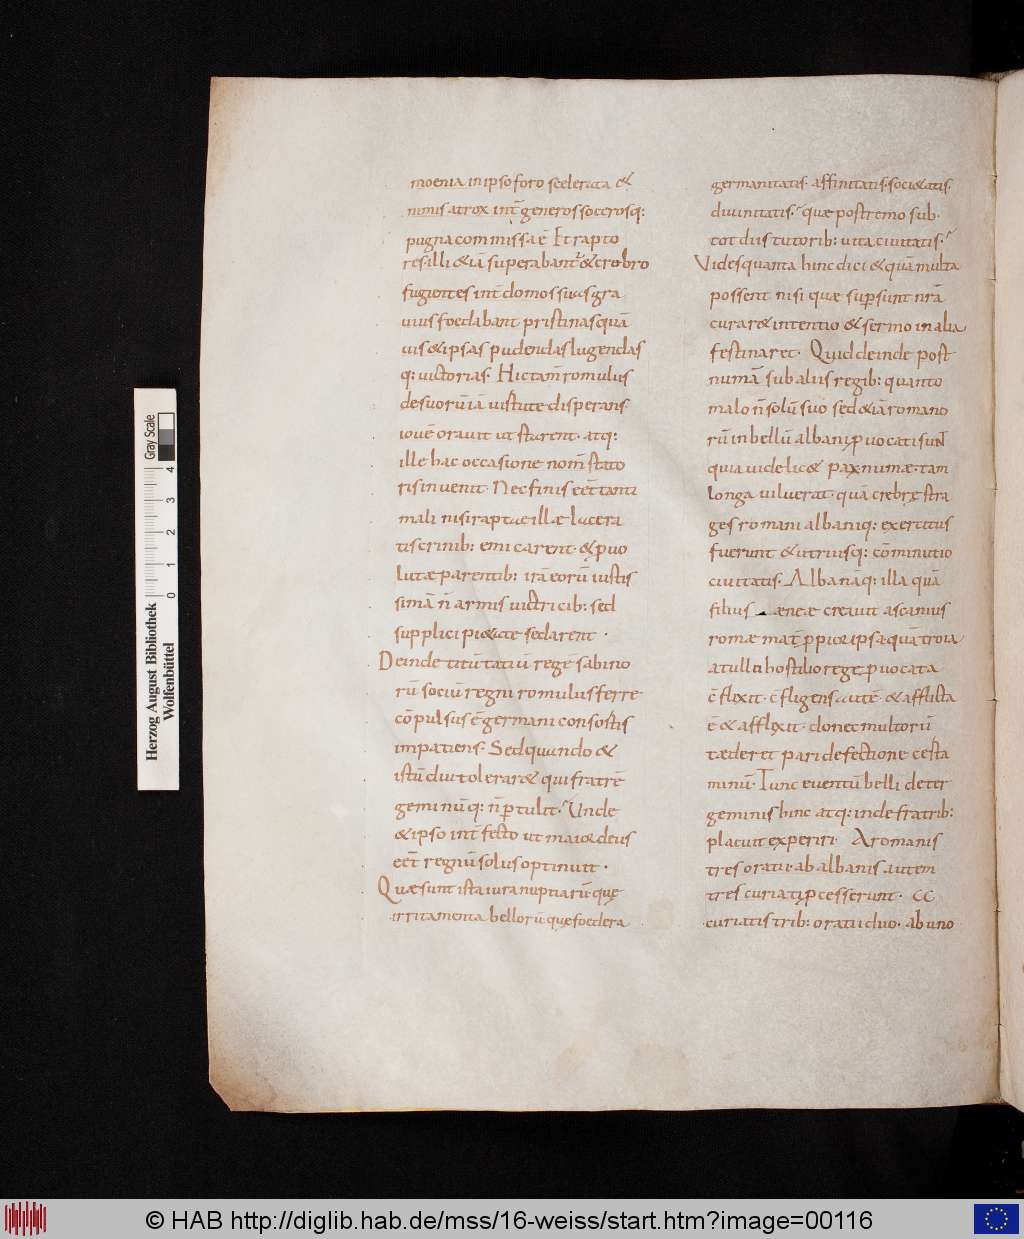 moenia in ipso foro scelerata &
nimis atrox int̄ generos socerosq:
pugna commissa ē Et rapto
res illi &iā superabant & crebro
fugientes int̄ domos suas gra
uius foedabant pristinas quā
uis & ipsas pudendas lugendas
q: uictorias. Hic tam̄ romulus
de suorū iā uirtute disperans
iouē orauit ut starent. atq:
ille hac occasione nom̄ stato
ris inuenit. Nec finis eēt tanti
mali nisi raptae illae lacera
tis crinib: emicarent. & puo
lutae parentib: irā eorū iustis
simā n̄ armis uictricib: sed
supplici pi&ate sedarent.
Deinde titū tatiū regē sabino
rū sociū regni romulus ferre
cōpulsus ē germani consortis
impatiens. Sed quando &
istū diu tolerar& qui fratrē
geminūq: n̄ ptulit. Unde
& ipso int̄fecto ut maior deus
eēt regnū solus optinuit.
Quae sunt ista iura nuptiarū quę
irritamenta bellorū quę foedera
germanitatis. affinitatis. soci&atis.
diuinitatis. quae postremo sub
tot diis tutorib: uita ciuitatis.
Vides quanta hinc dici & quā multa
possent nisi quae supsunt nr̄a
curar& intentio & sermo in alia
festinaret. Quid deinde post
numā sub aliis regib: quanto
malo n̄ solū suo sed &iā romano
rū in bellū albani puocati sunt
quia uidelic& pax numae tam
longa uiluerat. quā crebrę stra
ges romani albaniq: exercitus
fuerunt & utriusq: cōminutio
ciuitatis. Alba nāq: illa quā
filius aeneae creauit ascanius
romae mat̄ ppior ipsa quā troia
a tullo hostilio rege puocata
cōflixit. cōfligens autē & afflicta
ē & afflixit. donec multorū
taeder& pari defectione certa
minū. Tunc euentū belli de ter
geminis hinc atq: inde fratrib:
placuit experiri. A romanis
tres oratii. ab albanis autem
tres curiatii pcesserunt. A
curiatiis trib: oratii duo. ab uno
Herzog August Bibliothek
Wolfenbüttel
0 1 2 3 4
Gray Scale
© HAB http://diglib.hab.de/mss/16-weiss/start.htm?image=00116